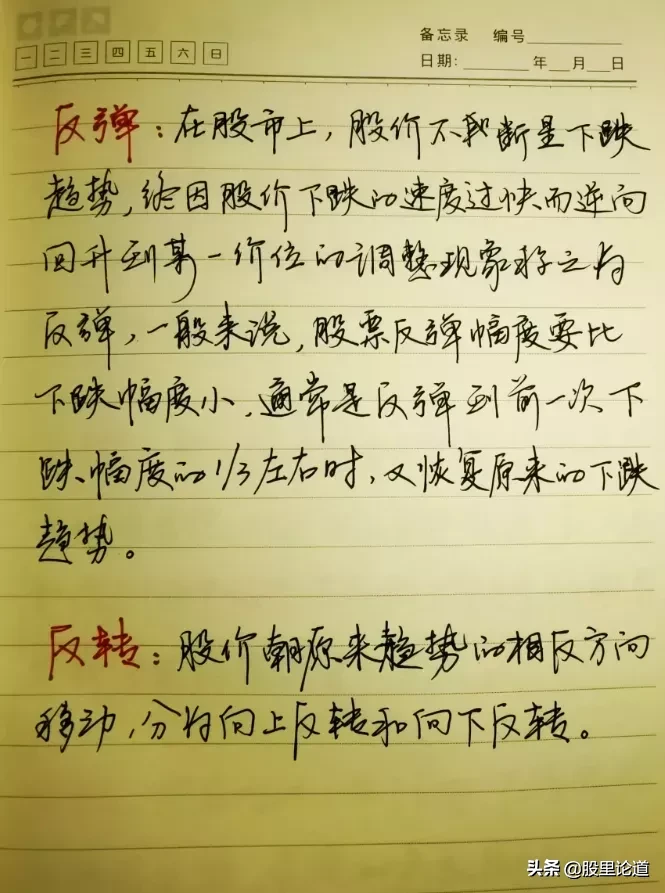 备忘录 编号
一 二 三 四 五 六 日
日期: 年 月 日
反弹:在股市上,股价不断呈下跌
趋势,终因股价下跌的速度过快而逆向
回升到某一价位的调整现象称之为
反弹,一般来说,股票反弹幅度要比
下跌幅度小,通常是反弹到前一次下
跌幅度的1/3左右时,又恢复原来的下跌
趋势。
反转:股价朝原来趋势的相反方向
移动,分为向上反转和向下反转。
头条 @股里论道